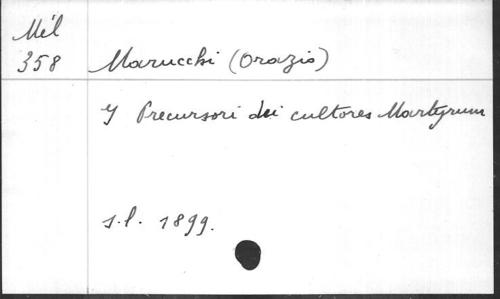 Mél
358 Marucchi (Orazio)
I Precursori dei cultores Martyrum
s.l. 1899.